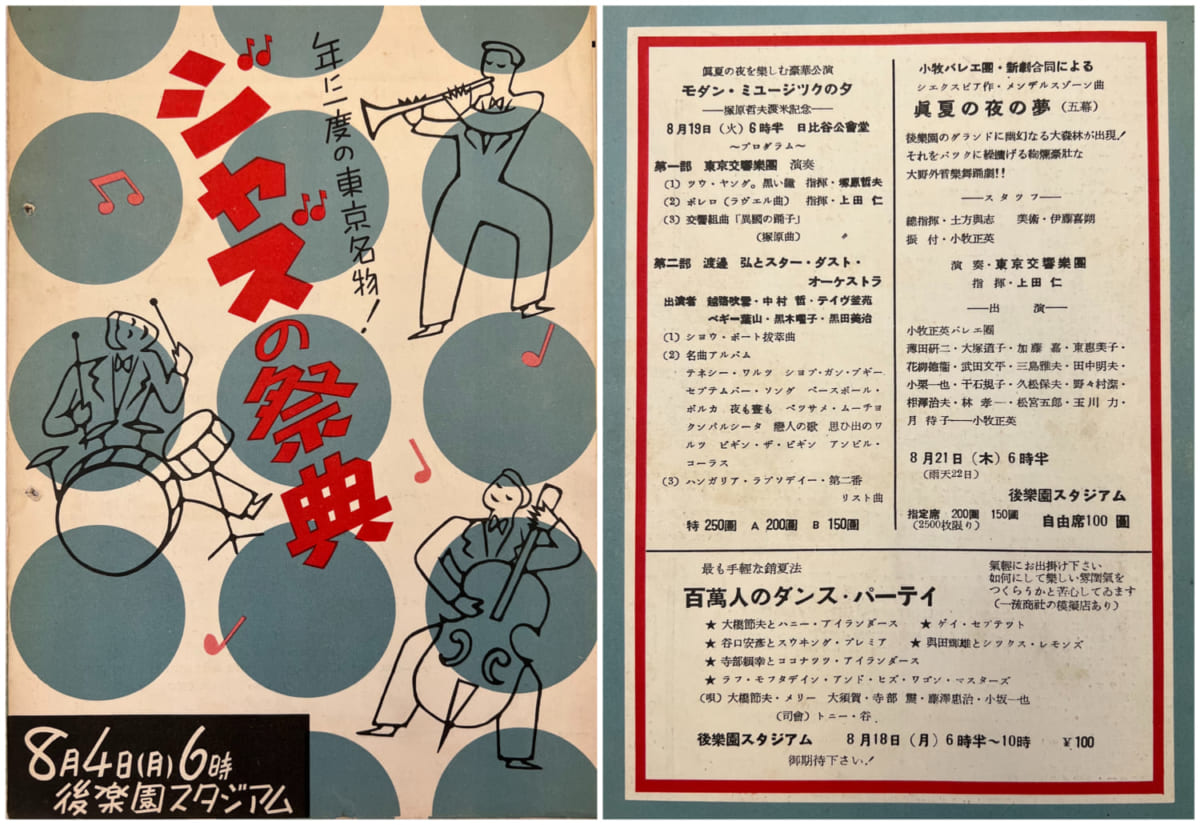 年に一度の東京名物!
ジャズの祭典
8月4日(月)6時
後楽園スタジアム
眞夏の夜を樂しむ豪華公演
モダン・ミユージツクの夕
――塚原哲夫渡米記念――
8月19日(火)6時半 日比谷公會堂
～プログラム～
第一部 東京交響樂團 演奏
(1) ツウ・ヤング。黒い瞳 指揮・塚原哲夫
(2) ボレロ(ラヴエル曲) 指揮・上田 仁
(3) 交響組曲「異國の踊子」
(塚原曲) 〃
第二部 渡邊 弘とスター・ダスト・
オーケストラ
出演者 越路吹雪・中村 哲・テイヴ釜萢
ペギー葉山・黒木曜子・黒田美治
(1) シヨウ・ボート拔萃曲
(2) 名曲アルバム
テネシー・ワルツ シヨブ・ガン・ブギー
セプテムバー・ソング ベースボール・
ポルカ 夜も晝も ベツサメ・ムーチヨ
クンパルシータ 戀人の歌 思ひ出のワ
ルツ ビギン・ザ・ビギン アンビル・
コーラス
(3) ハンガリア・ラプソデイー・第二番
リスト曲
特250圓 A200圓 B150圓
小牧バレエ團・新劇合同による
シエクスピア作・メンデルスゾーン曲
眞夏の夜の夢(五幕)
後樂園のグランドに幽幻なる大森林が出現!
それをバツクに繰擴げる絢爛豪壮な
大野外音樂舞踊劇!!
――スタツフ――
總指揮・土方與志 美術・伊藤喜朔
振付・小牧正英
演奏・東京交響樂團
指揮・上田 仁
――出 演――
小牧正英バレエ團
薄田研二・大塚道子・加藤 嘉・東恵美子・
花柳錐龍・武田文平・三島雅夫・田中明夫・
小栗一也・干石規子・久松保夫・野々村潔・
相澤治夫・林 孝一・松宮五郎・玉川 力・
月 待子――小牧正英
8月21日(木)6時半
(雨天22日)
後樂園スタジアム
指定席 200圓 150圓
(2500枚限り) 自由席100圓
最も手輕な銷夏法
百萬人のダンス・パーテイ
氣輕にお出掛け下さい
如何にして樂しい雰囲氣を
つくらうかと苦心してゐます
(一流商社の模擬店あり)
★ 大橋節夫とハニー・アイランダース ★ ゲイ・セプテツト
★ 谷口安彦とスウキング・プレミア ★ 與田輝雄とシツクス・レモンズ
★ 寺部頣幸とココナツツ・アイランダース
★ ラフ・モフタデイン・アンド・ヒズ・ワゴン・マスターズ
(唄) 大橋節夫・メリー 大須賀・寺部 震・藤澤惠治・小坂一也
(司會) トニー・谷
後樂園スタジアム 8月18日(月)6時半～10時 ¥100
御期待下さい!